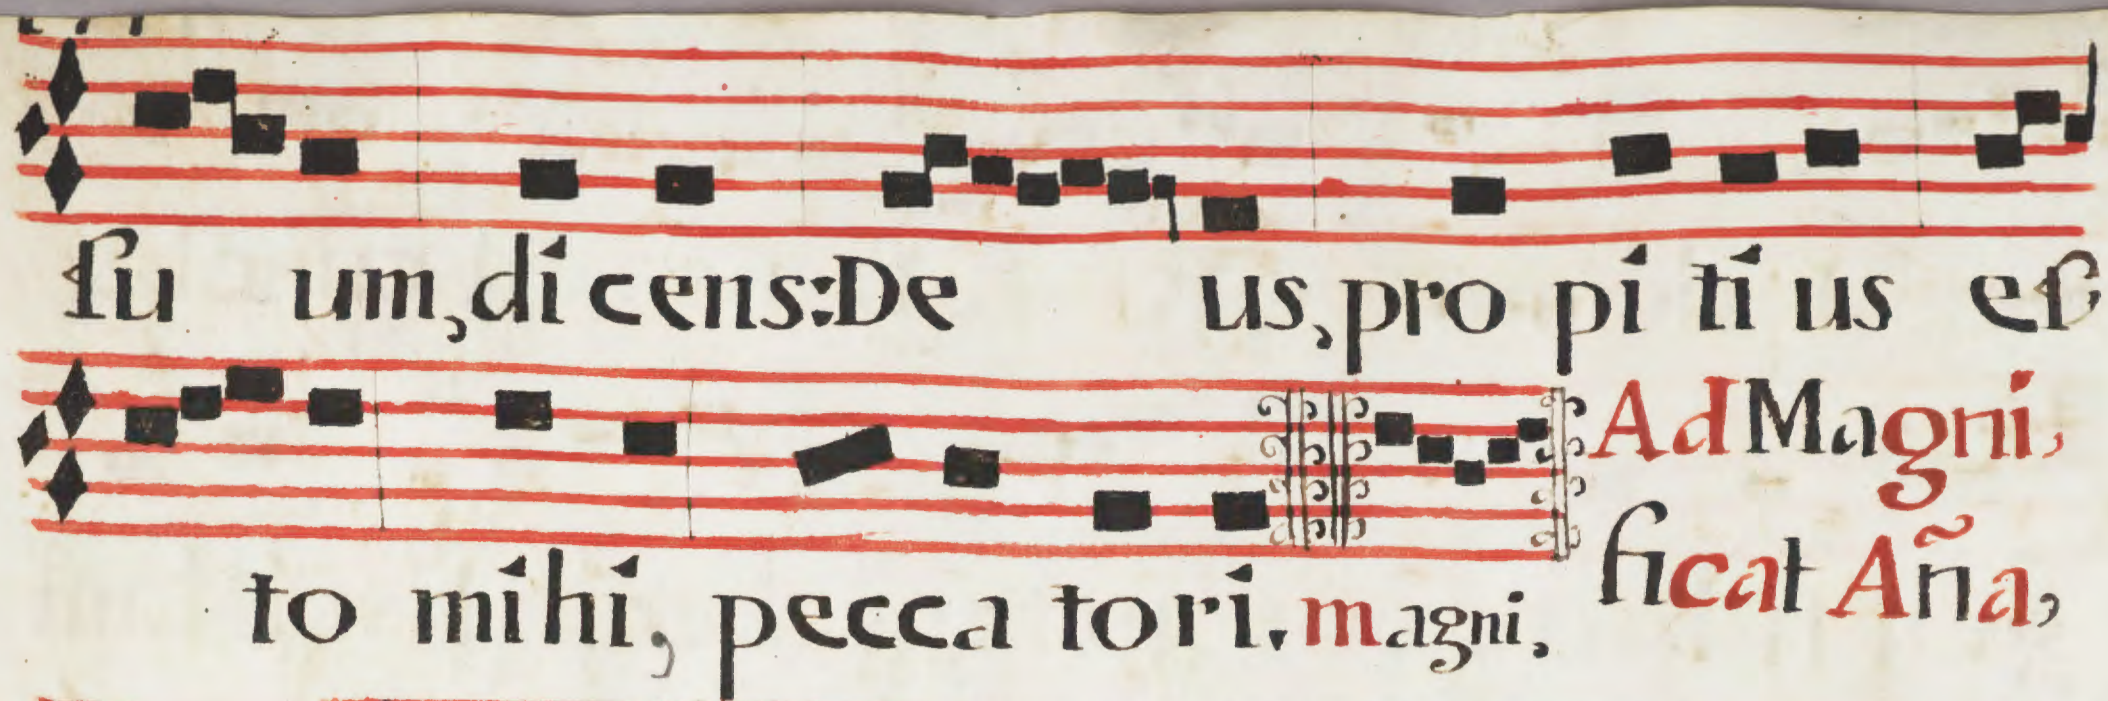 ſu um, di cens: De us, pro pi ti us eſ
to mi hi, pecca to ri. magni,
Ad Magni,
ficat Aña,